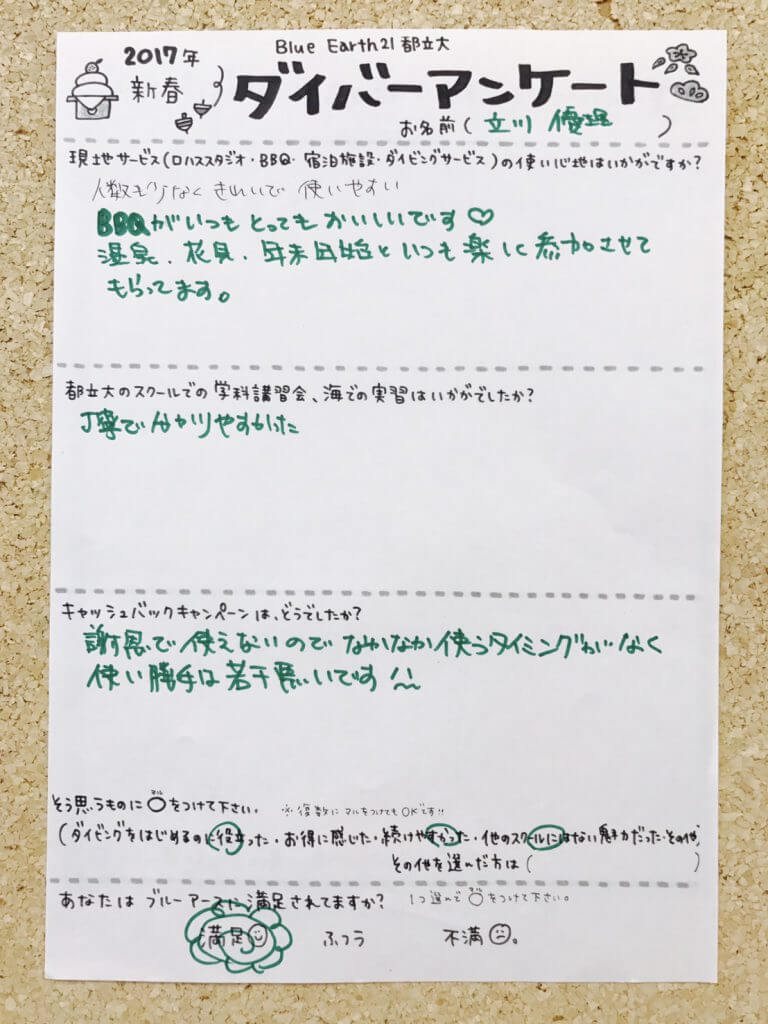 2017年
新春
Blue Earth21 都立大
ダイバーアンケート
お名前( 立川 優理 )
現地サービス(ロハススタジオ・BBQ・宿泊施設・ダイビングサービス)の使い心地はいかがですか?
人数も少なく きれいで 使いやすい
BBQがいつも とっても おいしいです♡
温泉、花見、年末年始といつも楽しく参加させて
もらってます。
都立大のスクールでの学科講習会、海での実習はいかがでしたか?
丁寧で分かりやすかった
キャッシュバックキャンペーンは、どうでしたか?
謝恩で使えないので なかなか使うタイミングがなく
使い勝手は若干悪いです
そう思うものに○をつけて下さい。 ※複数にマルをつけてもOKです!!
マル
(ダイビングをはじめるのに役立った・お得に感じた・続けやすかった・他のスクールにはない魅力だった・その他)
その他を選んだ方は( )
あなたは ブルーアースに満足されてますか? 1つ選んで○をつけて下さい。
マル
満足 ふつう 不満。